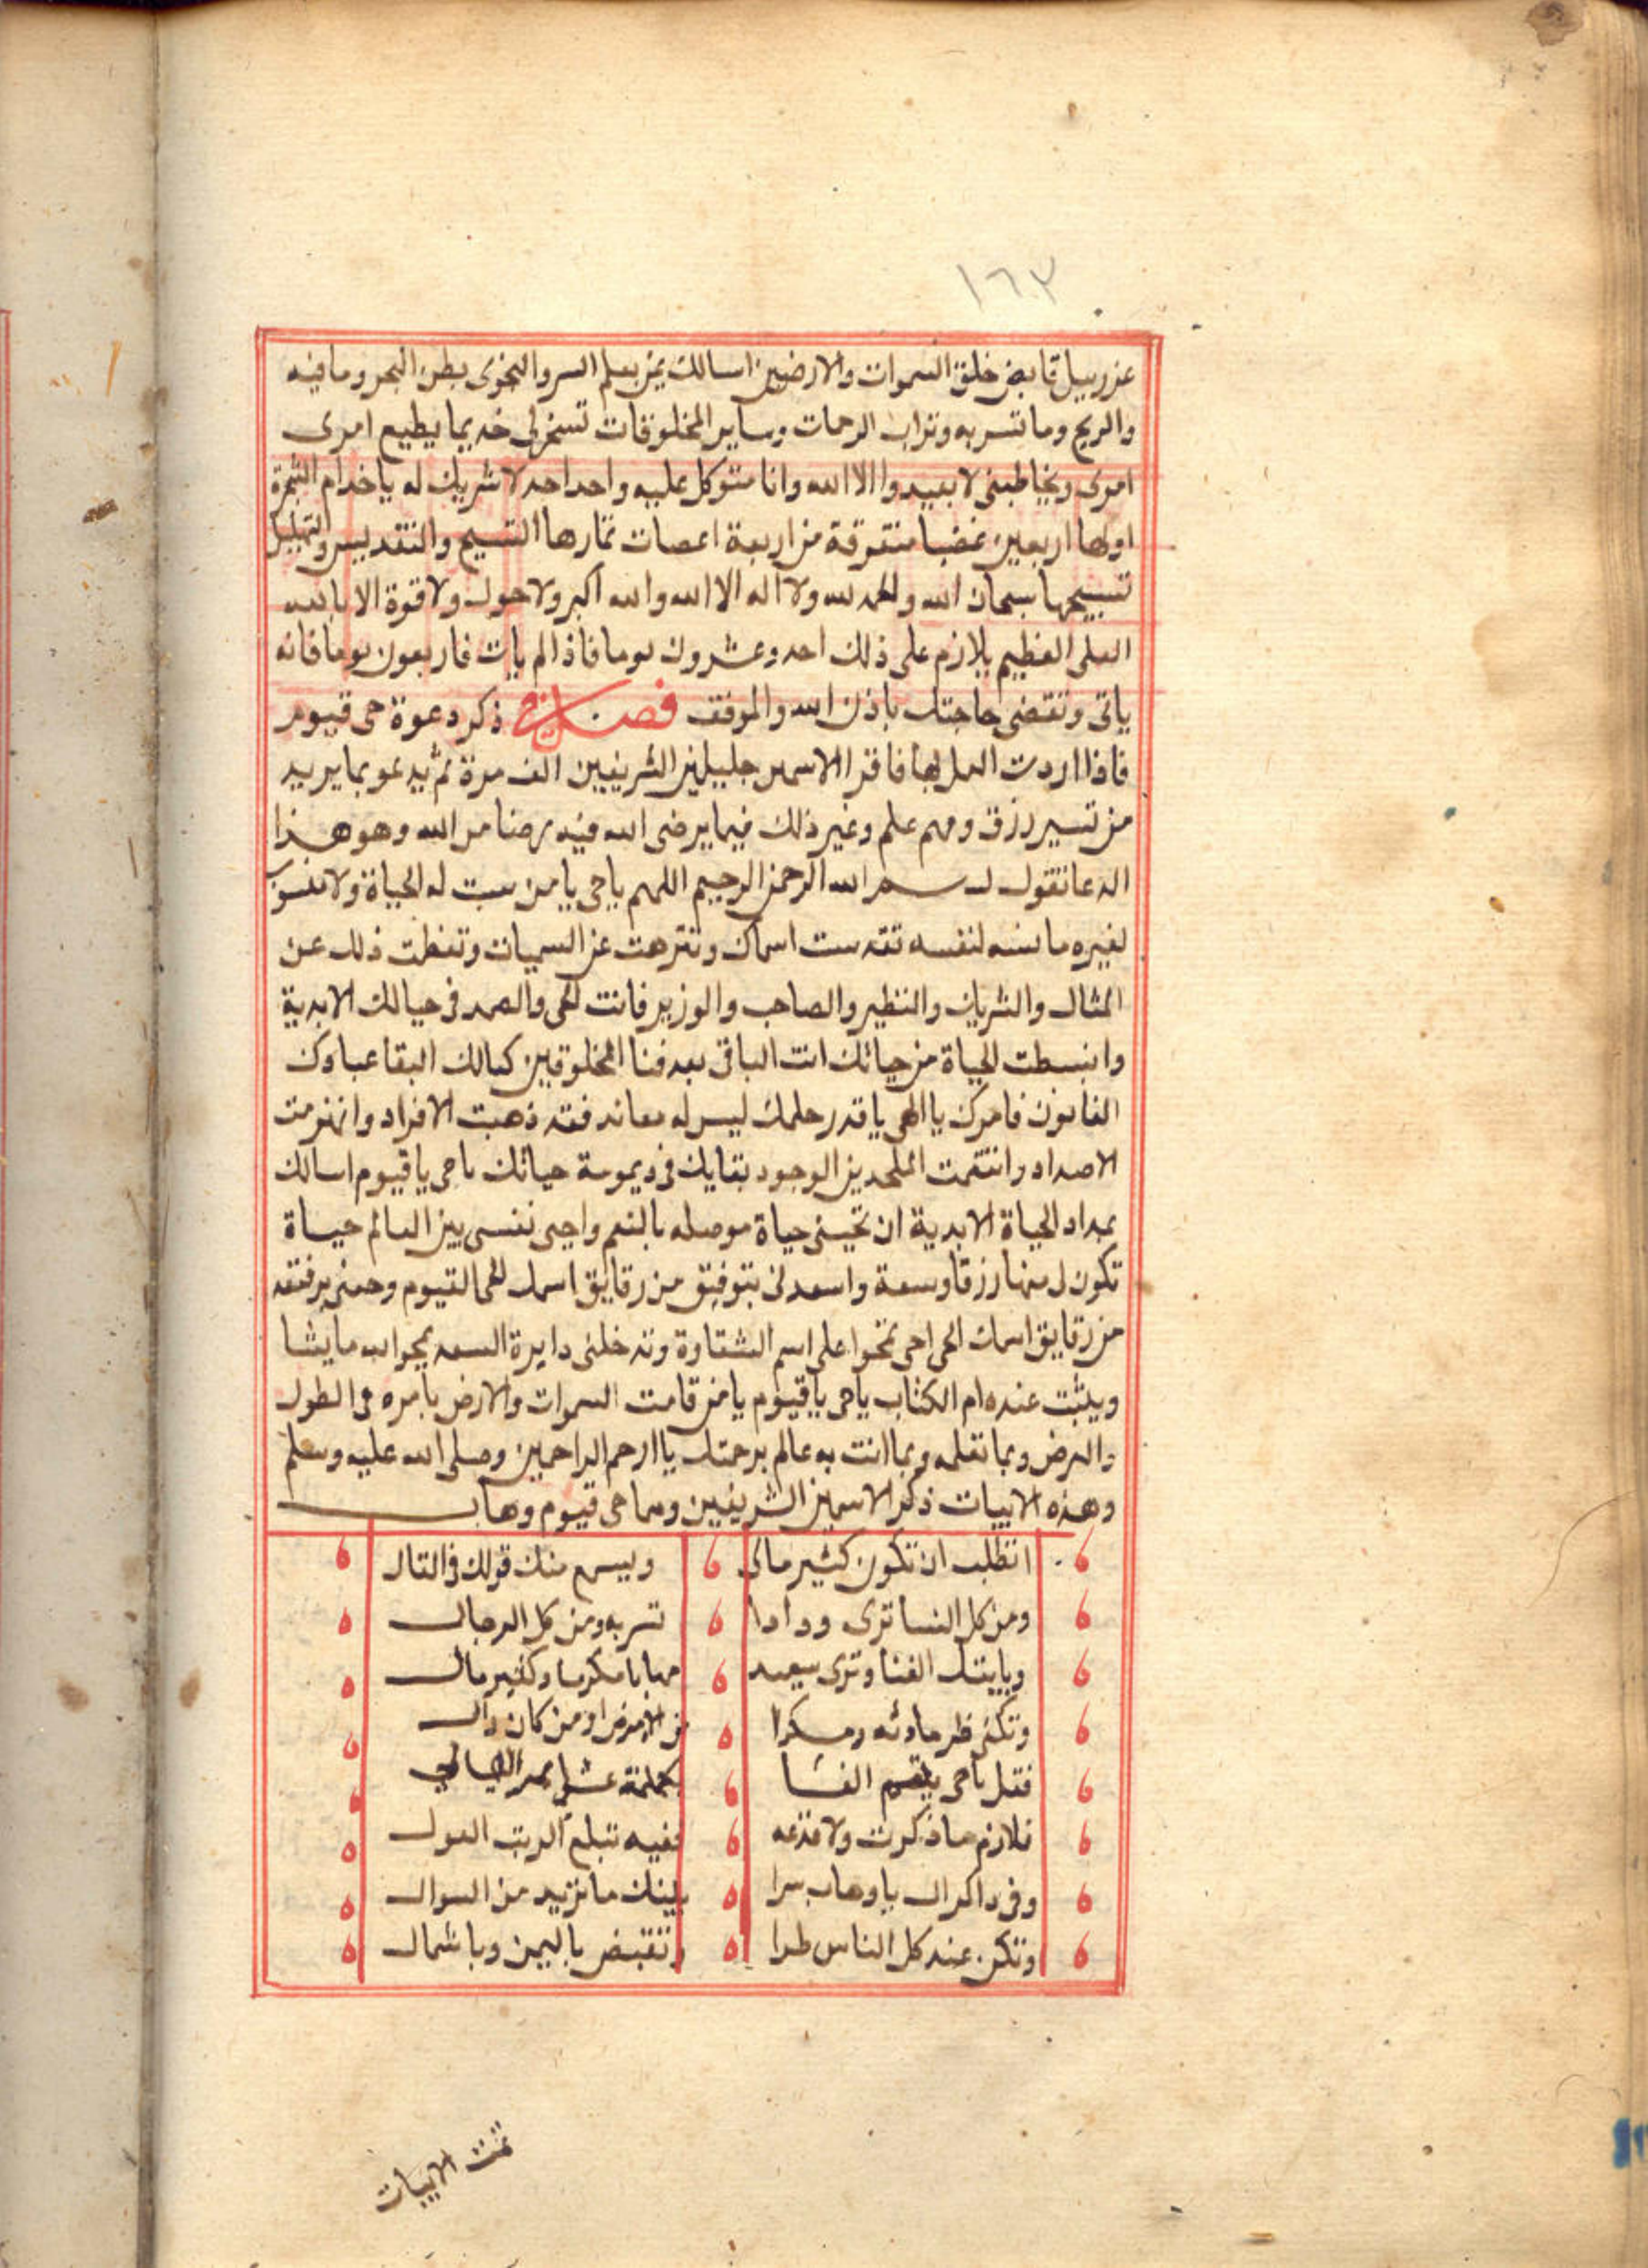 ١٦٣
عزرييل قابض خلق السموات والارضين اسالك بمن يعلم السر والنجوى بطن البحر وما فيه
والريح وما تسر به وتراب الرحمات وساير المخلوقات تسخر لى خديما يطيع امرى
امرى ويخاطبنى لا بعيد والا الله وانا متوكل عليه واحد احد لا شريك له ياخدام الشجرة
اولها اربعين غضبا متفرقة من اربعة اغصات ثمارها التسبيح والتقديس والتهليل
تسبيحها سبحان الله والحمد لله ولا اله الا الله والله اكبر ولا حول ولا قوة الا بالله
العلى العظيم يلازم على ذلك احد وعشرون يوما فاذا لم يات فاربعون يوما فانه
ياتى وتقضى حاجتك باذن الله والموفق فصل فى ذكر دعوة حى قيوم
فاذا اردت العمل بها فاقرا الاسمين جليلين الشريفين الف مرة ثم يدعو بما يريد
من تسير رزق وفهم علم وغير ذلك فيما يرضى الله فيه برضا من الله وهو هذا
الدعا تقول بسم الله الرحمن الرحيم اللهم ياحى يا من ست له الحياة ولا
لغيره ما نسه لنفسه تقدست اسماك وتنزهت عن السميات وتعظمت ذلك عن
المثال والشريك والنظير والصاحب والوزير فانت الحى والصمد فى حيالك الابدية
وانبسطت الحياة من حياتك انت الباقى بعد فنا المخلوقين كمالك البقا عبادك
الفانون فامرك يا الهى يا قدر حلمك ليس له معاند فقد ذهبت الافراد وانهزمت
الاصداد وانتقمت الملحدين الوجود بقايك فى ديمومة حياتك ياحى ياقيوم اسالك
بمداد الحياة الابدية ان تحينى حياة موصله بالنعم واحيى نفسى بين العالم حياة
تكون ل منها رزقا وسعة واسعدنى بتوفيق من رقايق اسمك الحى القيوم وحمنى برفقه
من رقايق اسمك الحى احى تمحوا على اسم الشقاوة وتدخلنى دايرة السعد يمحوا الله ما يشا
ويثبت عنده ام الكتاب ياحى ياقيوم يا من قامت السموات والارض بامره فى الطول
والعرض وبما تعلمه وبما انت به عالم برحمتك يا ارحم الراحمين وصلى الله عليه وسلم
وهذه الابيات ذكر الاسمين الشريفين وهما حى قيوم وهاب
اتطلب ان تكون كثير مالى ويسمع منك قولك فى القال
ومن كل النسا ترى ودادا تسر به ومن كل الرجال
وياتيك الغنا وترى سعيد مهابا مكرما وكثير مال
وتكفى ظر حادثه ومسكرا من الامرض او من كان وال
فقل ياحى يا قيوم الفا بكملة عشا
فلازم ما ذكرت ولا تدعه ففيه تبلع الرتب العول
وفى داكرال يا وهاب سرا يلينك ما تريد من السوال
وتكن عند كل الناس طرا وتقبض باليمن وبا شمال
تمت الابيات